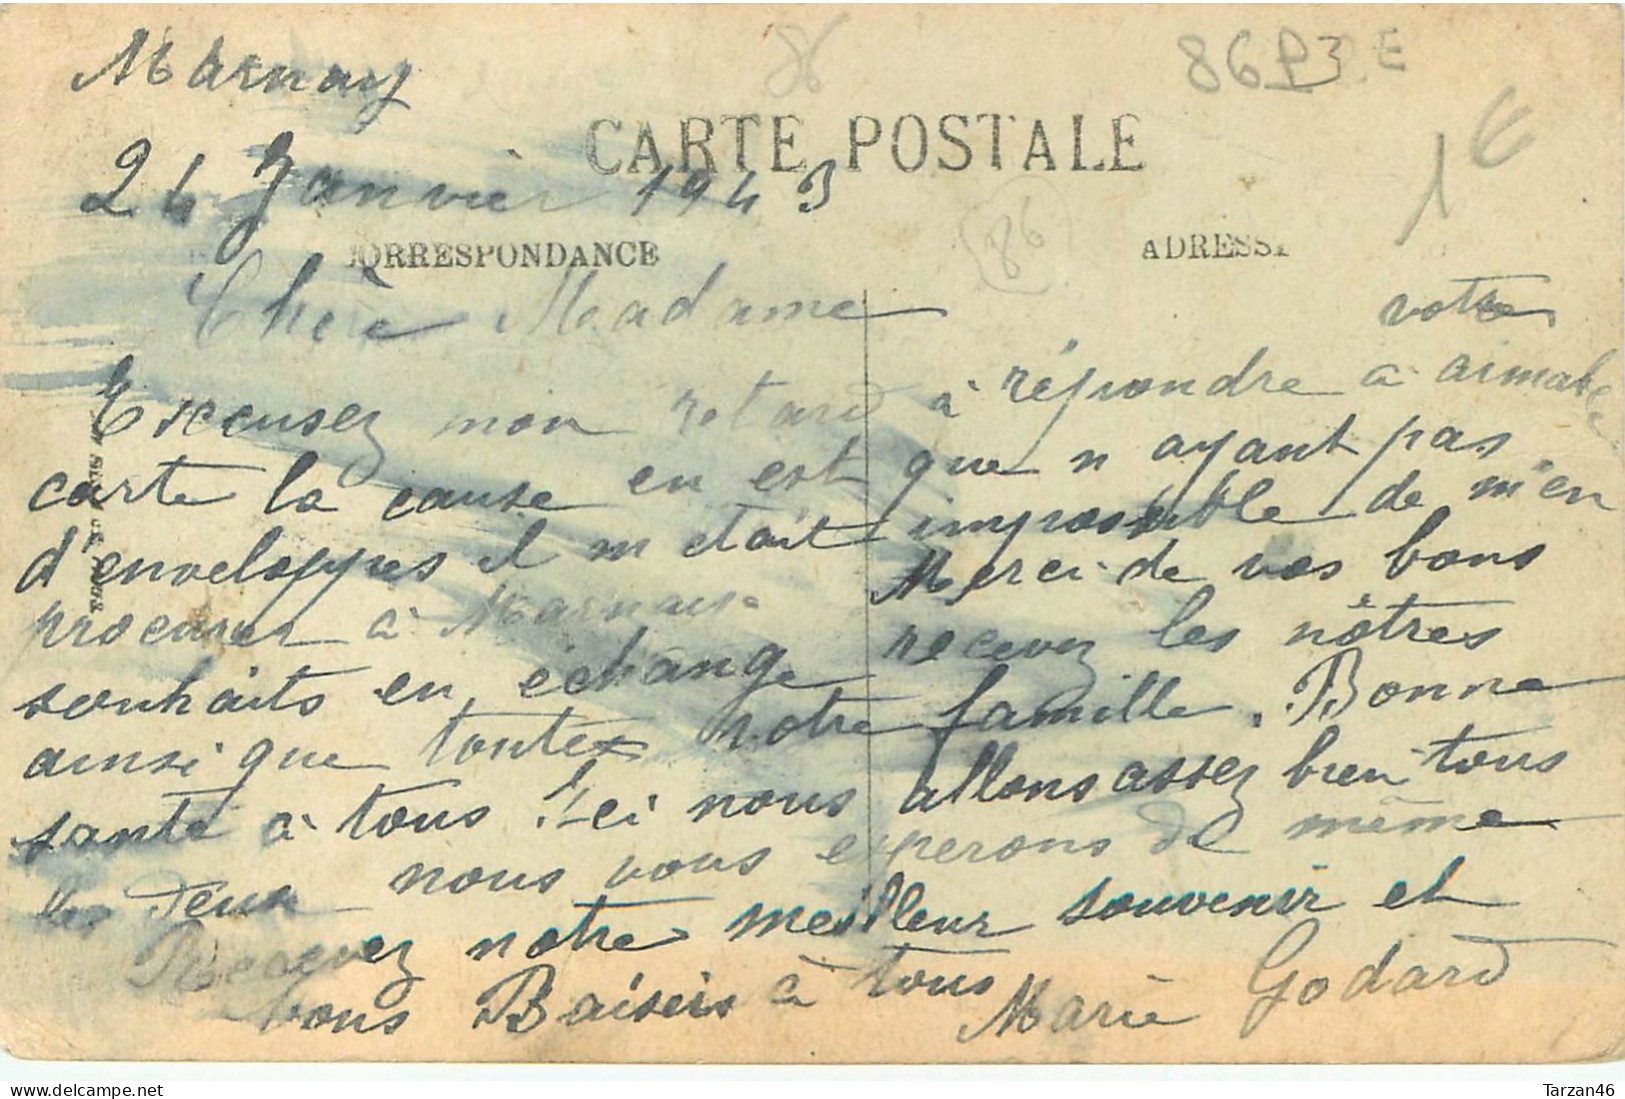 86
86 P3 E
1 €
Marnay
CARTE POSTALE
24 Janvièr 1943
(86)
CORRESPONDANCE ADRESSE
Chère Madame
votre
Excusez mon retard à répondre a aimable
carte la cause en est que n ayant pas
d'enveloppes il m etait impossible de m'en
procurer à Marnay. Merci de vos bons
souhaits en échange recevez les nôtres
ainsi que toute notre famille. Bonne
santé à tous Ici nous allons assez bien tous
les deux nous vous esperons de même
Recevez notre meilleur souvenir et
bons Baiseis à tous Marie Godard
Tarzan46